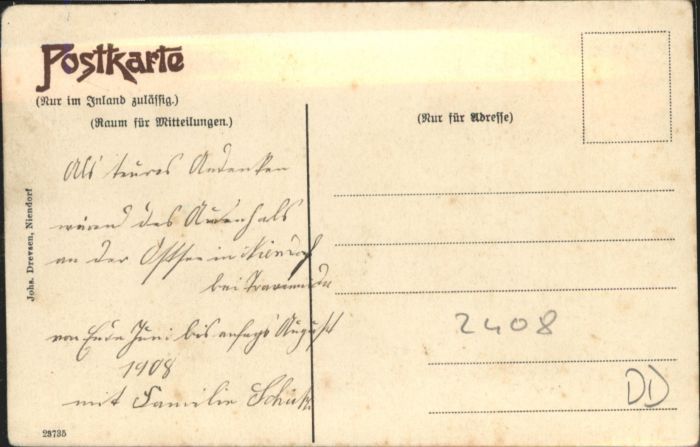 Postkarte
(Nur im Inland zulässig.)
(Raum für Mitteilungen.)
(Nur für Adresse)
Als teures Andenken
wärend des Aufenhals
an der Ostsee in Niendorf
bei Travemünde
von Ende Juni bis anfangs August
1908
mit Familie
Johs. Drevsen, Niendorf
23735
2408
DD